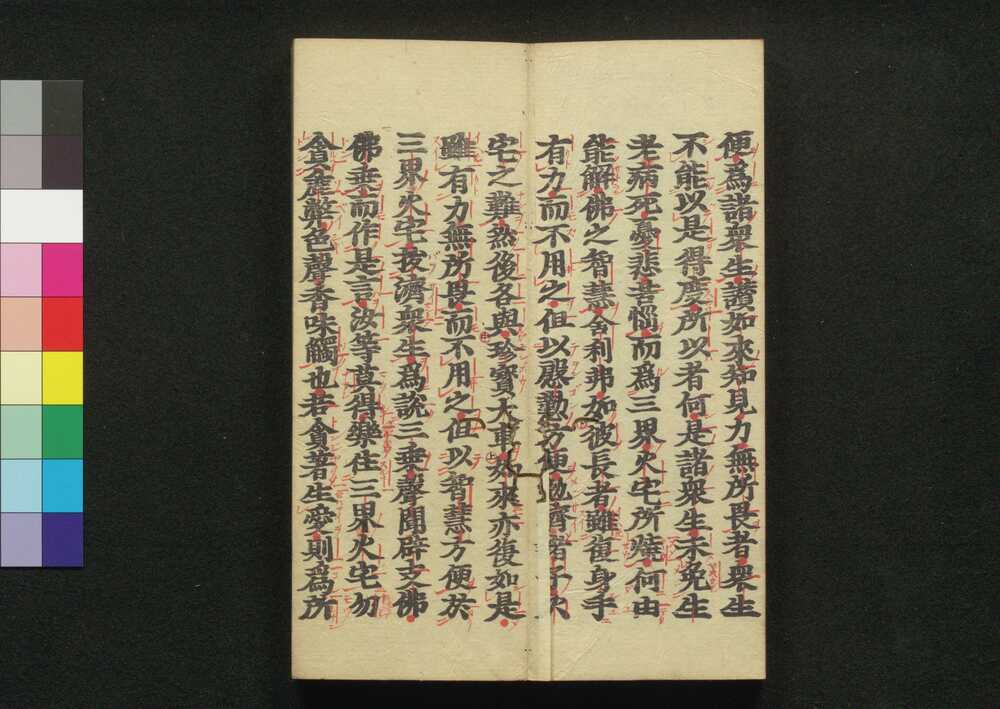 便爲諸衆生讃如來知見力無所畏者衆生
不能以是得度所以者何是諸衆生未免生
老病死憂悲苦惱而爲三界火宅所燒何由
能解佛之智慧舍利弗如彼長者雖復身手
有力而不用之但以慇懃方便勉濟諸子火
宅之難然後各與珍寶大車如來亦復如是
雖有力無所畏而不用之但以智慧方便於
三界火宅拔濟衆生爲説三乘聲聞辟支佛
佛乘而作是言汝等莫得樂住三界火宅勿
貪麁弊色聲香味觸也若貪著生愛則爲所